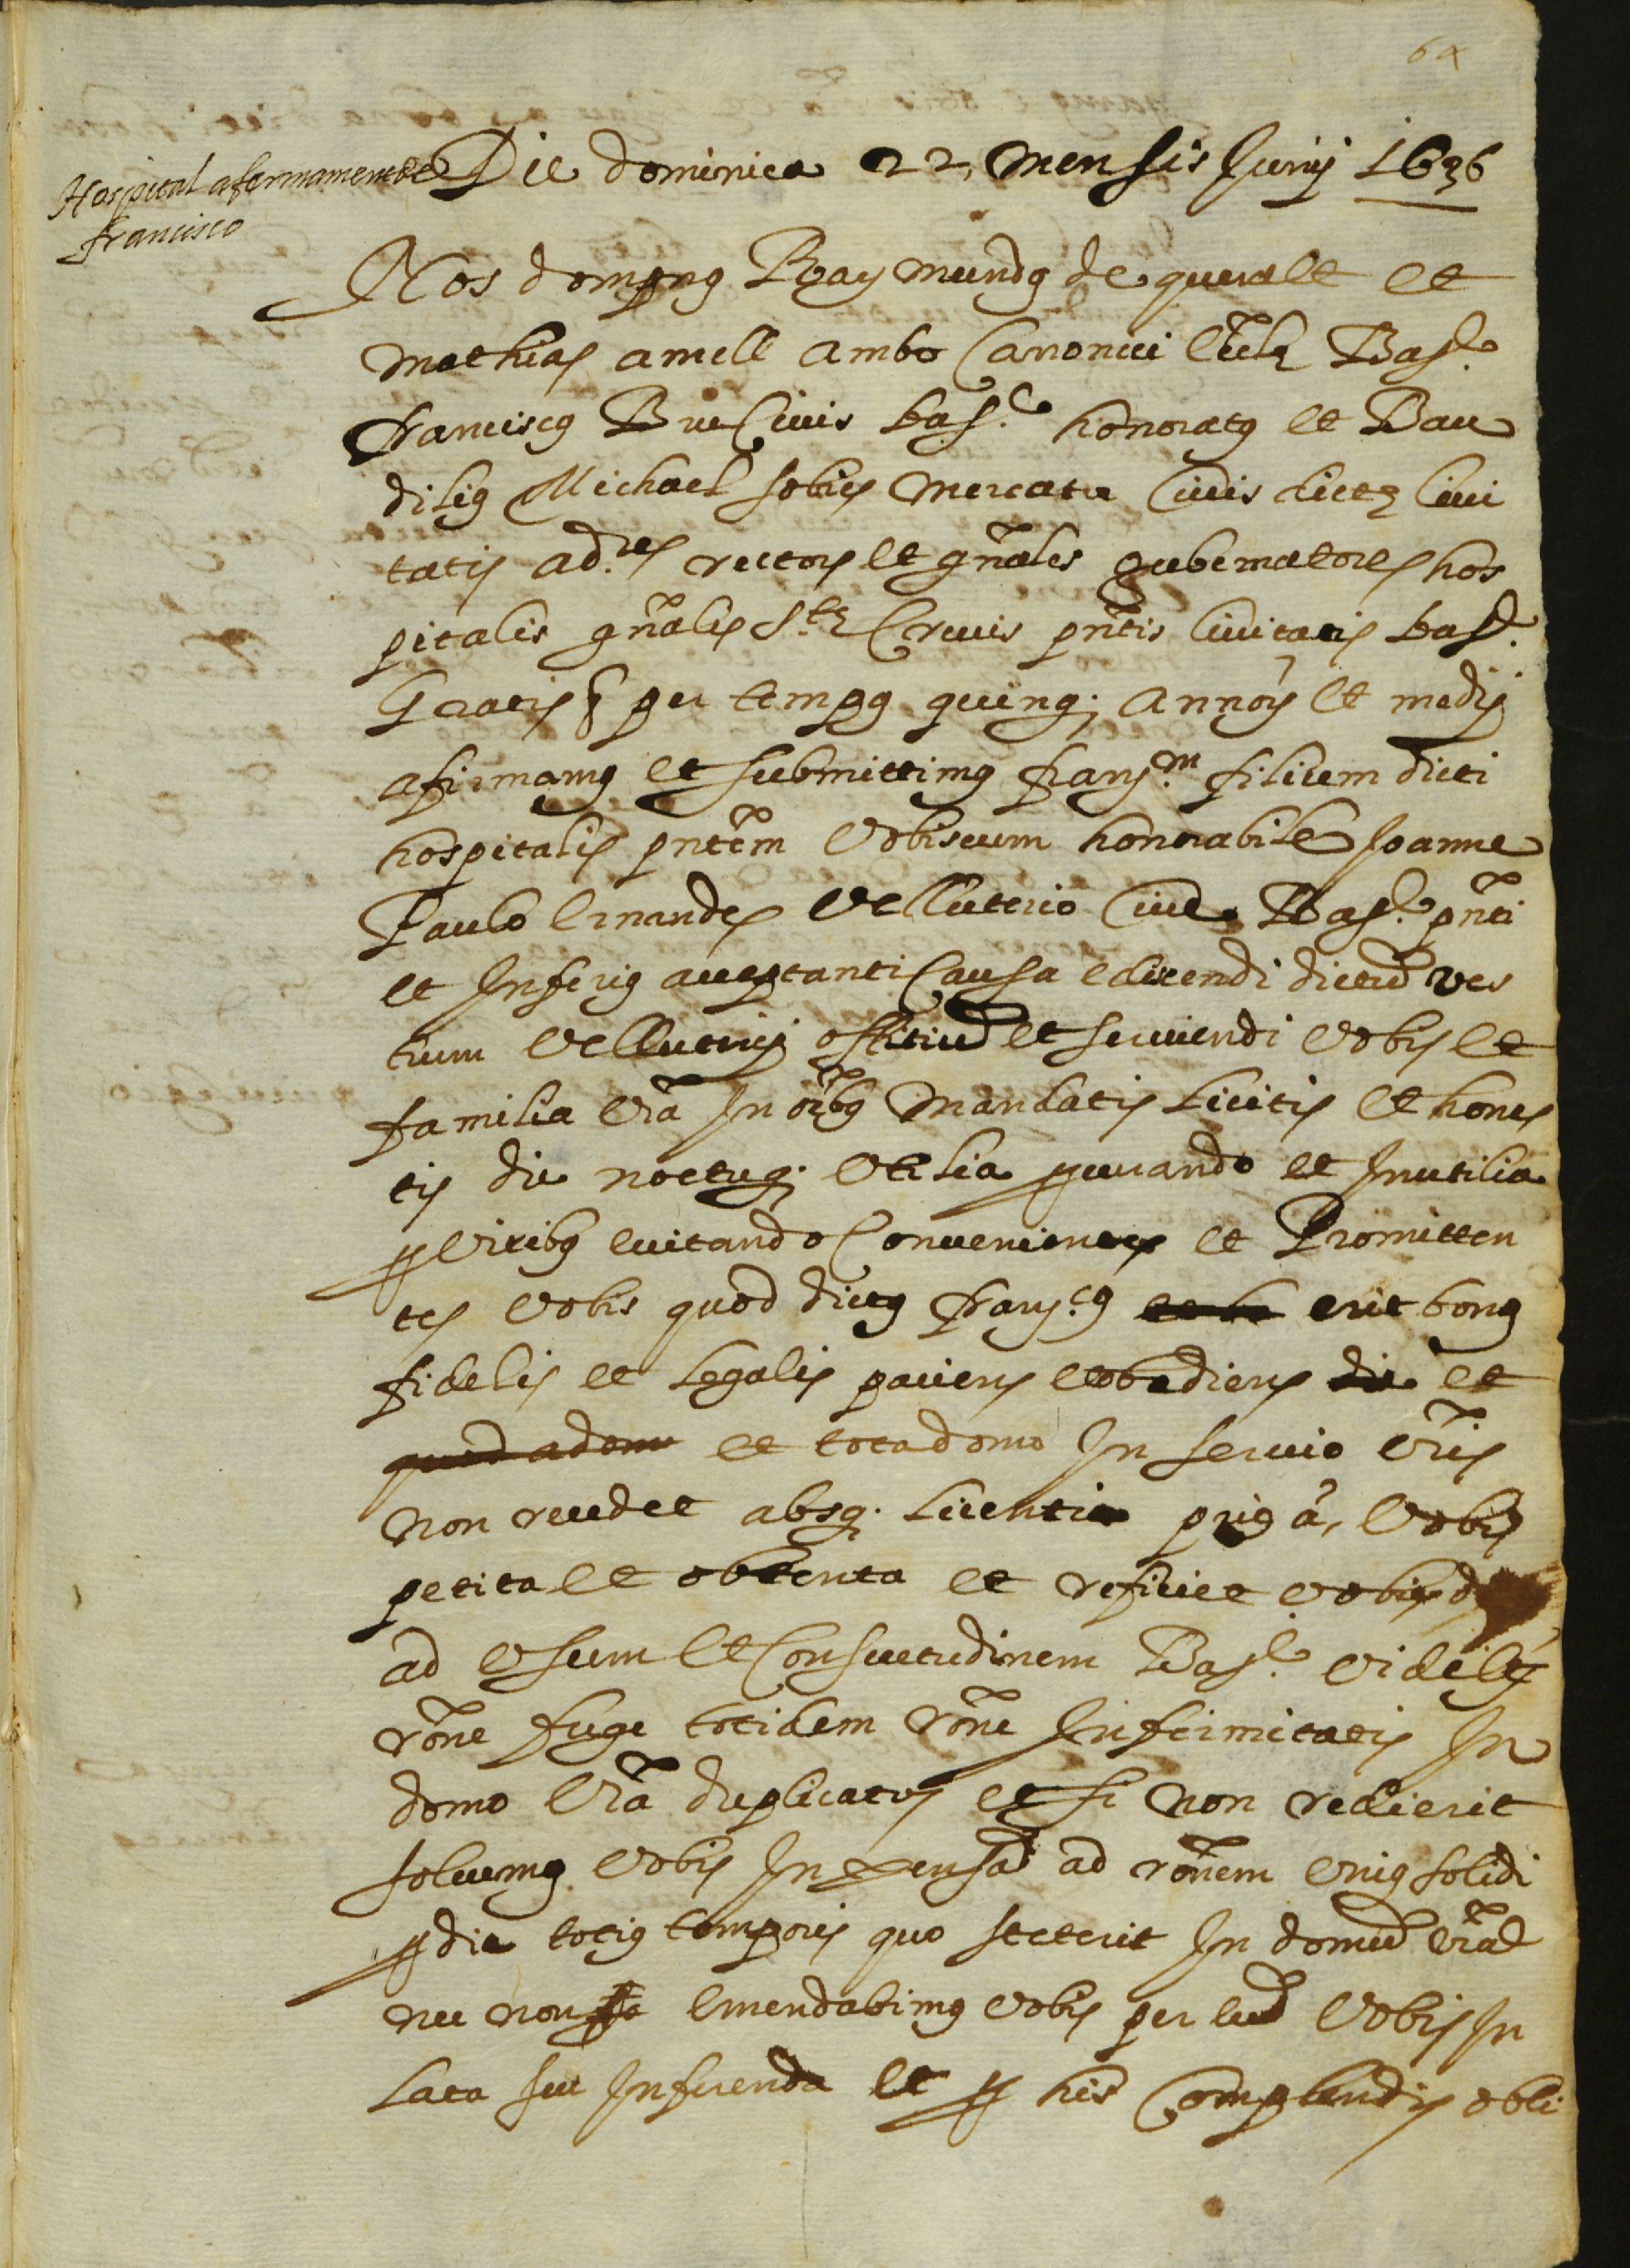 64
Hospital afermament de
francisco
Die dominica 22 mensis Junij 1636
Nos dompnus Raymundus de queralt et
Mathias amell ambo Canonici eccle Bar.e
franciscus Bru Civis bar.e honoratus et Bau
dilius Michael sobies mercator Civis dicte Civi
tatis ad.res rectores et gñales gubernatores hos
pitalis gñalis S.te Crucis pñtis Civitatis bar.e
Gratis & per tempus quinq; annoŕ et medij
afirmamus et submittimus franj.m filium dicti
hospitalis pñtem vobiscum honorabile Joanne
Paulo ernandes velluterio Cive Bar.e pñti
et Inferius acceptanti Causa ediscendi dictum ves
trum vellutrij offitium et serviendi vobis et
familia vrã In oĩbus mandatis licitis et hones
tis die noctuq; Utilia procurando et Inutilia
pro viribus evitando Convenientes et Promitten
tes vobis quod dictus franj.cus et bo erit bonus
fidelis et legalis paciens et obediens die et
quod a domo et tota domo In servio vrĩs
non recedet absq; licentia prius á, vobis
petita et obtenta et reficiet vobis d
ad usum et Consuetudinem Bar.e videlt
rõne fuge totidem rõne Infirmitatis In
domo vrã duplicatos et si non redierit
solvemus vobis Inpensã ad rõnem unius solidi
pro die totius temporis quo steterit In domũ vrã
nec non emendabimus vobis per eum vobis In
lata seu Inferenda et pro his Complendis obli